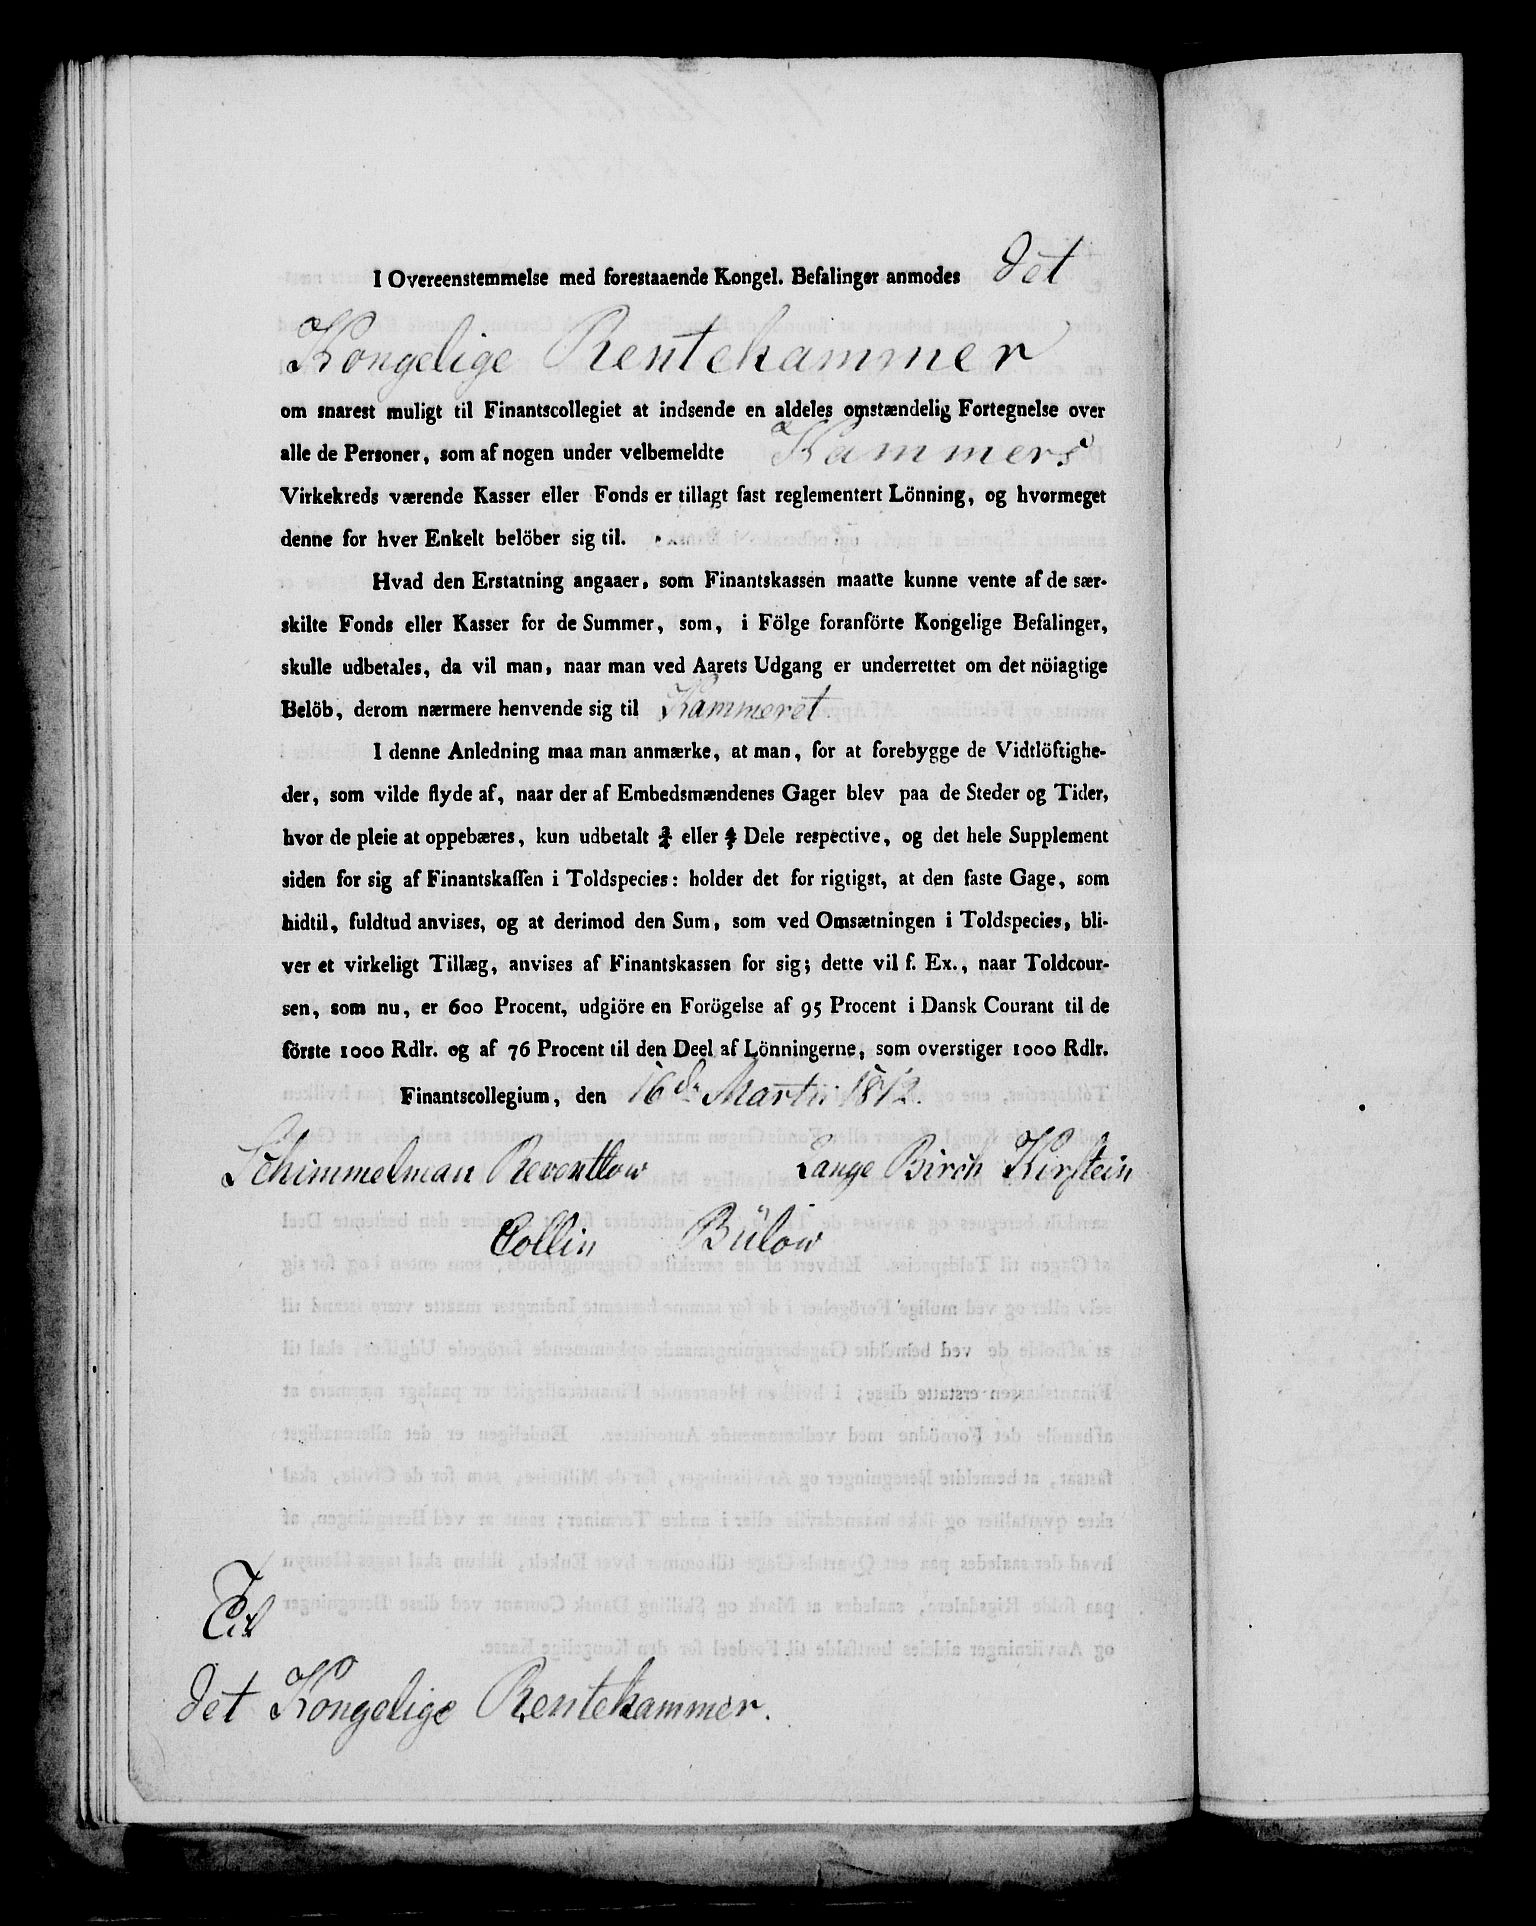 I Overeenstemmelse med forestaaende Kongel. Befalinger anmodes det
Kongelige Rentekammer
om snarest muligt til Finantscollegiet at indsende en aldeles omstændelig Fortegnelse over
alle de Personer, som af nogen under velbemeldte Kammers
Virkekreds værende Kasser eller Fonds er tillagt fast reglementert Lönning, og hvormeget
denne for hver Enkelt belöber sig til.
Hvad den Erstatning angaaer, som Finantskassen maatte kunne vente af de sær-
skilte Fonds eller Kasser for de Summer, som, i Fölge foranförte Kongelige Befalinger,
skulle udbetales, da vil man, naar man ved Aarets Udgang er underrettet om det nöiagtige
Belöb, derom nærmere henvende sig til Kammeret.
I denne Anledning maa man anmærke, at man, for at forebygge de Vidtlöftighe-
der, som vilde flyde af, naar der af Embedsmændenes Gager blev paa de Steder og Tider,
hvor de pleie at oppebæres, kun udbetalt eller Dele respective, og det hele Supplement
siden for sig af Finantskassen i Toldspecies: holder det for rigtigst, at den faste Gage, som
hidtil, fuldtud anvises, og at derimod den Sum, som ved Omsætningen i Toldspecies, bli-
ver et virkeligt Tillæg, anvises af Finantskassen for sig; dette vil f. Ex., naar Toldcour-
sen, som nu, er 600 Procent, udgiöre en Forögelse af 95 Procent i Dansk Courant til de
förste 1000 Rdlr. og af 76 Procent til den Deel af Lönningerne, som overstiger 1000 Rdlr.
Finantscollegium, den 16de Martii 1812.
Schimmelman Reventlow Lange Birch Kirstein
Collin Bülow
Til
det Kongelige Rentekammer.